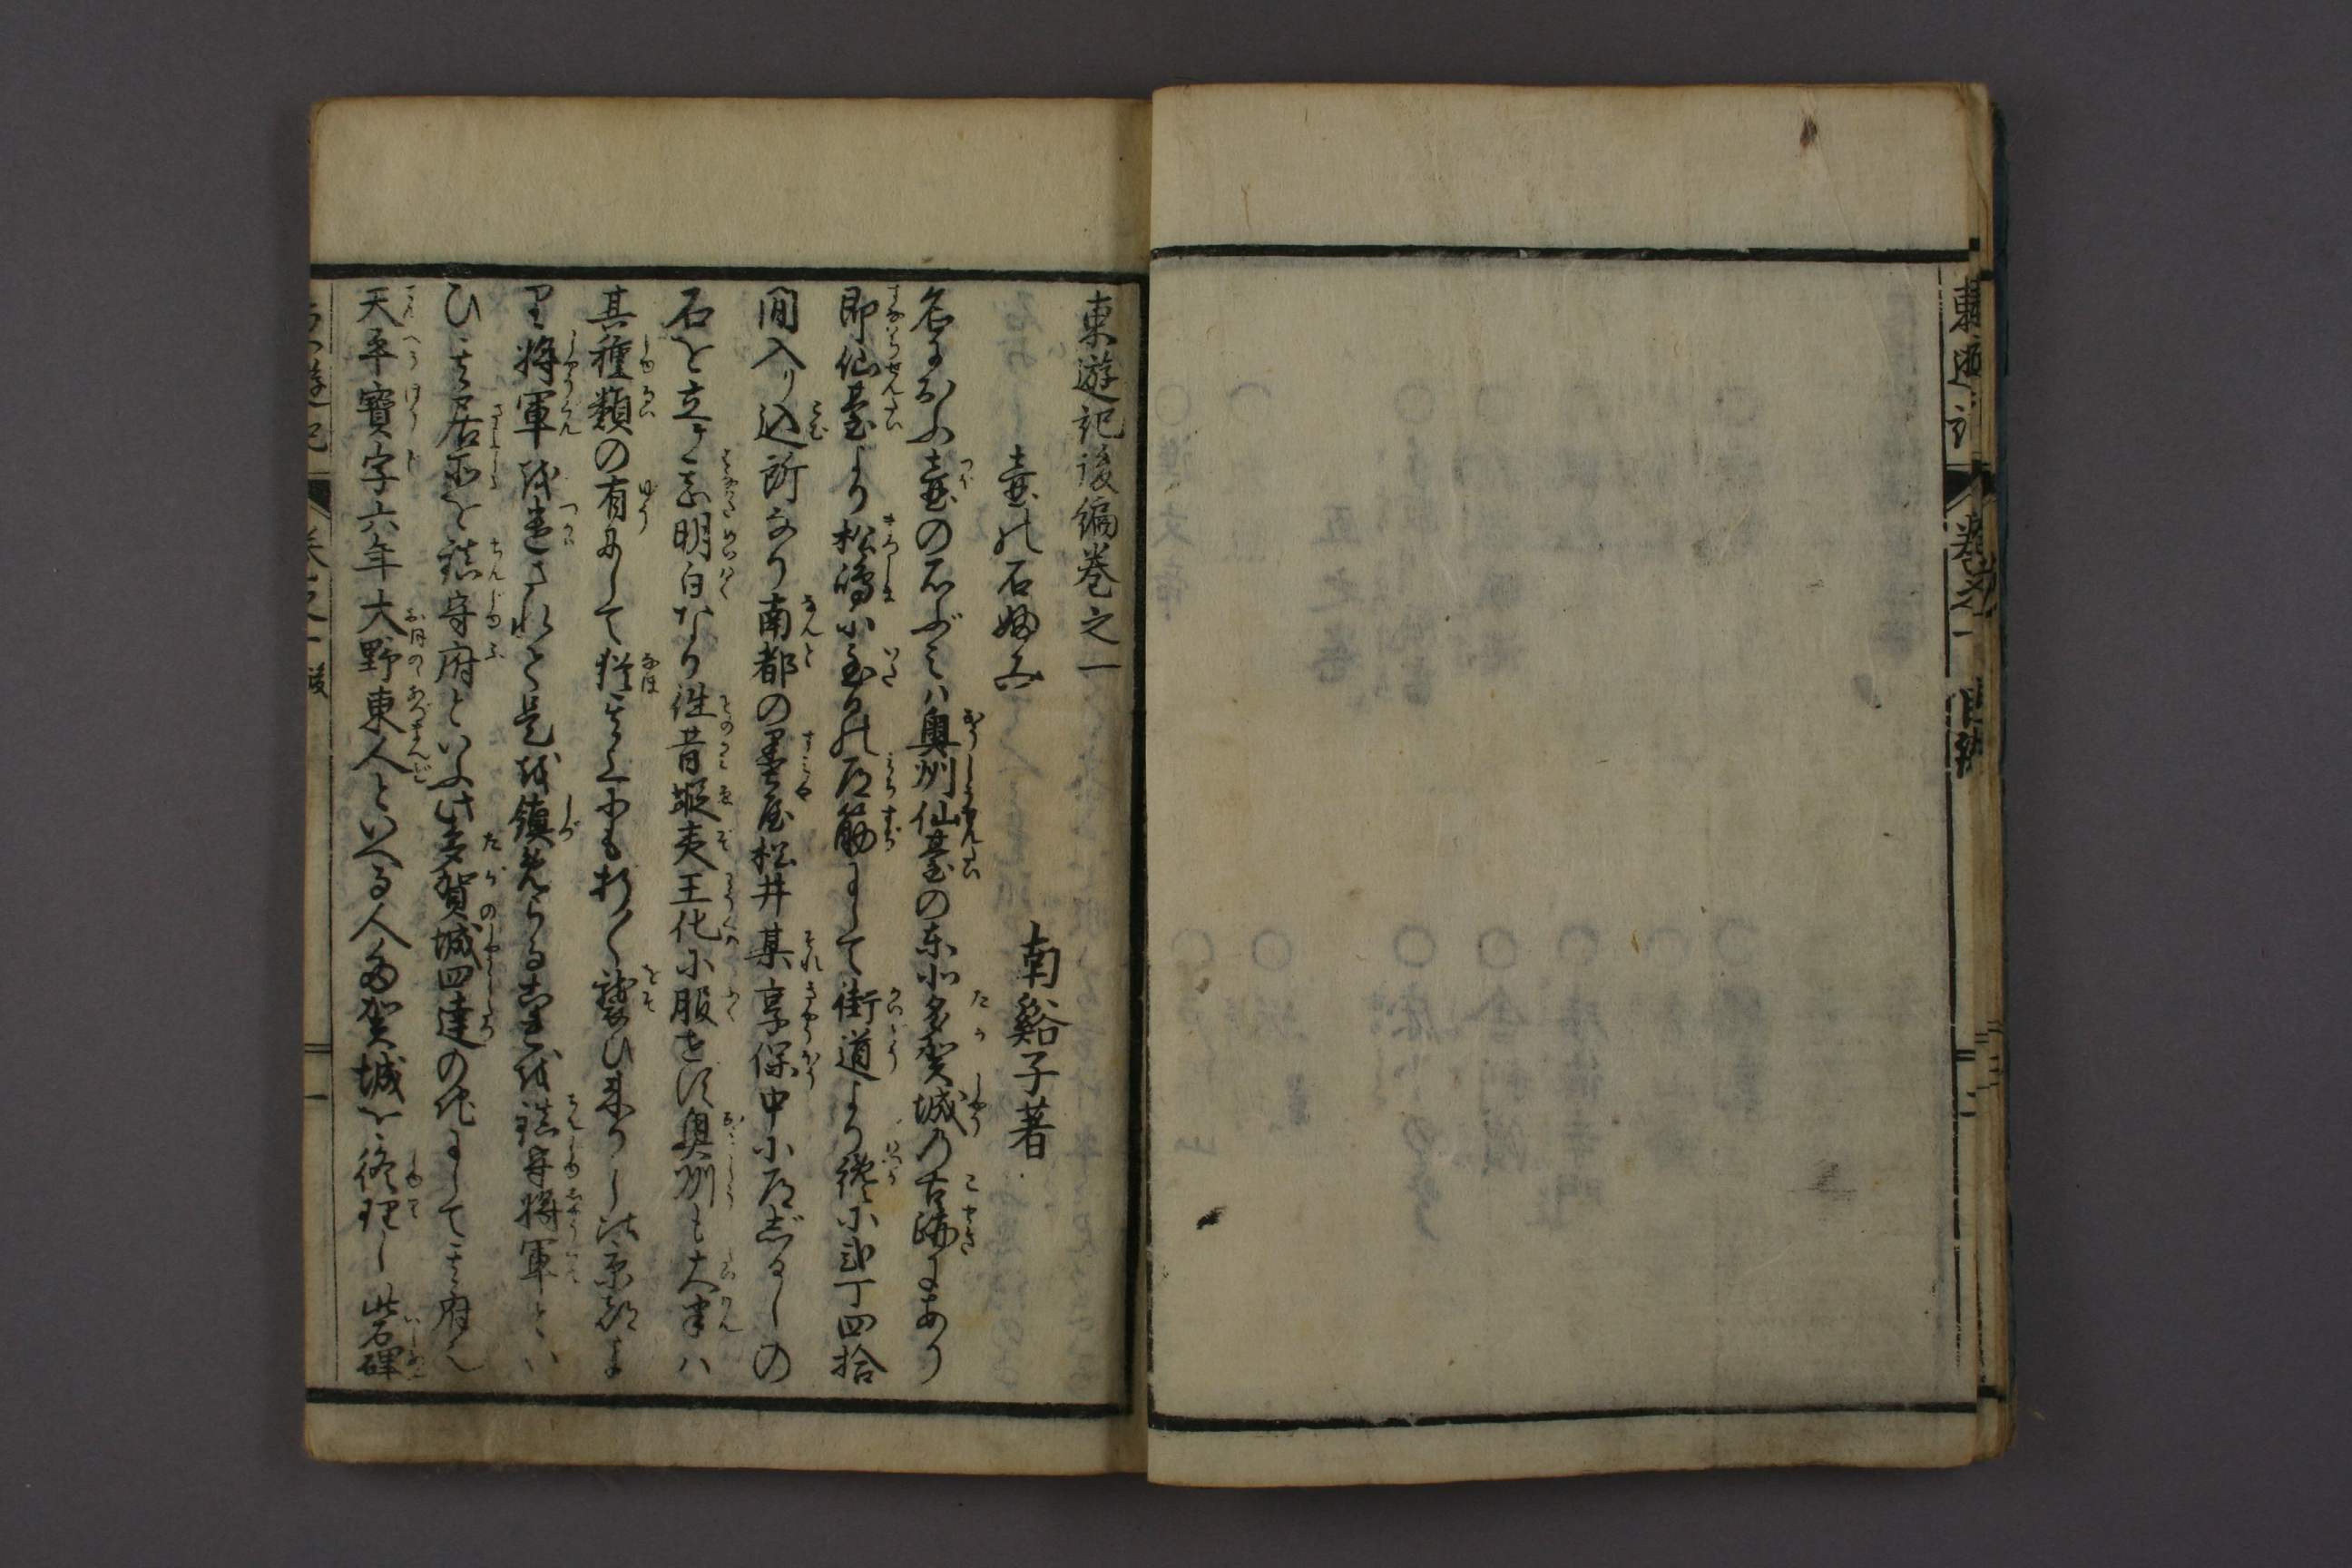 東遊記後編巻之一
南谿子著
壺の石婦み
名におふ壺の石ぶみハ奥州仙臺の東北多賀城の古跡にあり
即仙臺より松嶋に至るの道筋にして街道より纔に弐丁四拾
間入り込所なり南都の墨屋松井某享保中に道しるしの
石を立てゝ明白なり往昔蝦夷王化に服せず奥州も大半ハ
其種類の有にして猶其人にも折々襲ひ来りし故京都よ
り将軍を遣されて是を鎮めらる是を鎮守将軍とい
ひ其居所を鎮守府といふ此多賀城四達の地にして其府也
天平寶字六年大野東人といへる人多賀城を修理し此石碑
東遊記 巻之一 後 一
東遊記 巻之一